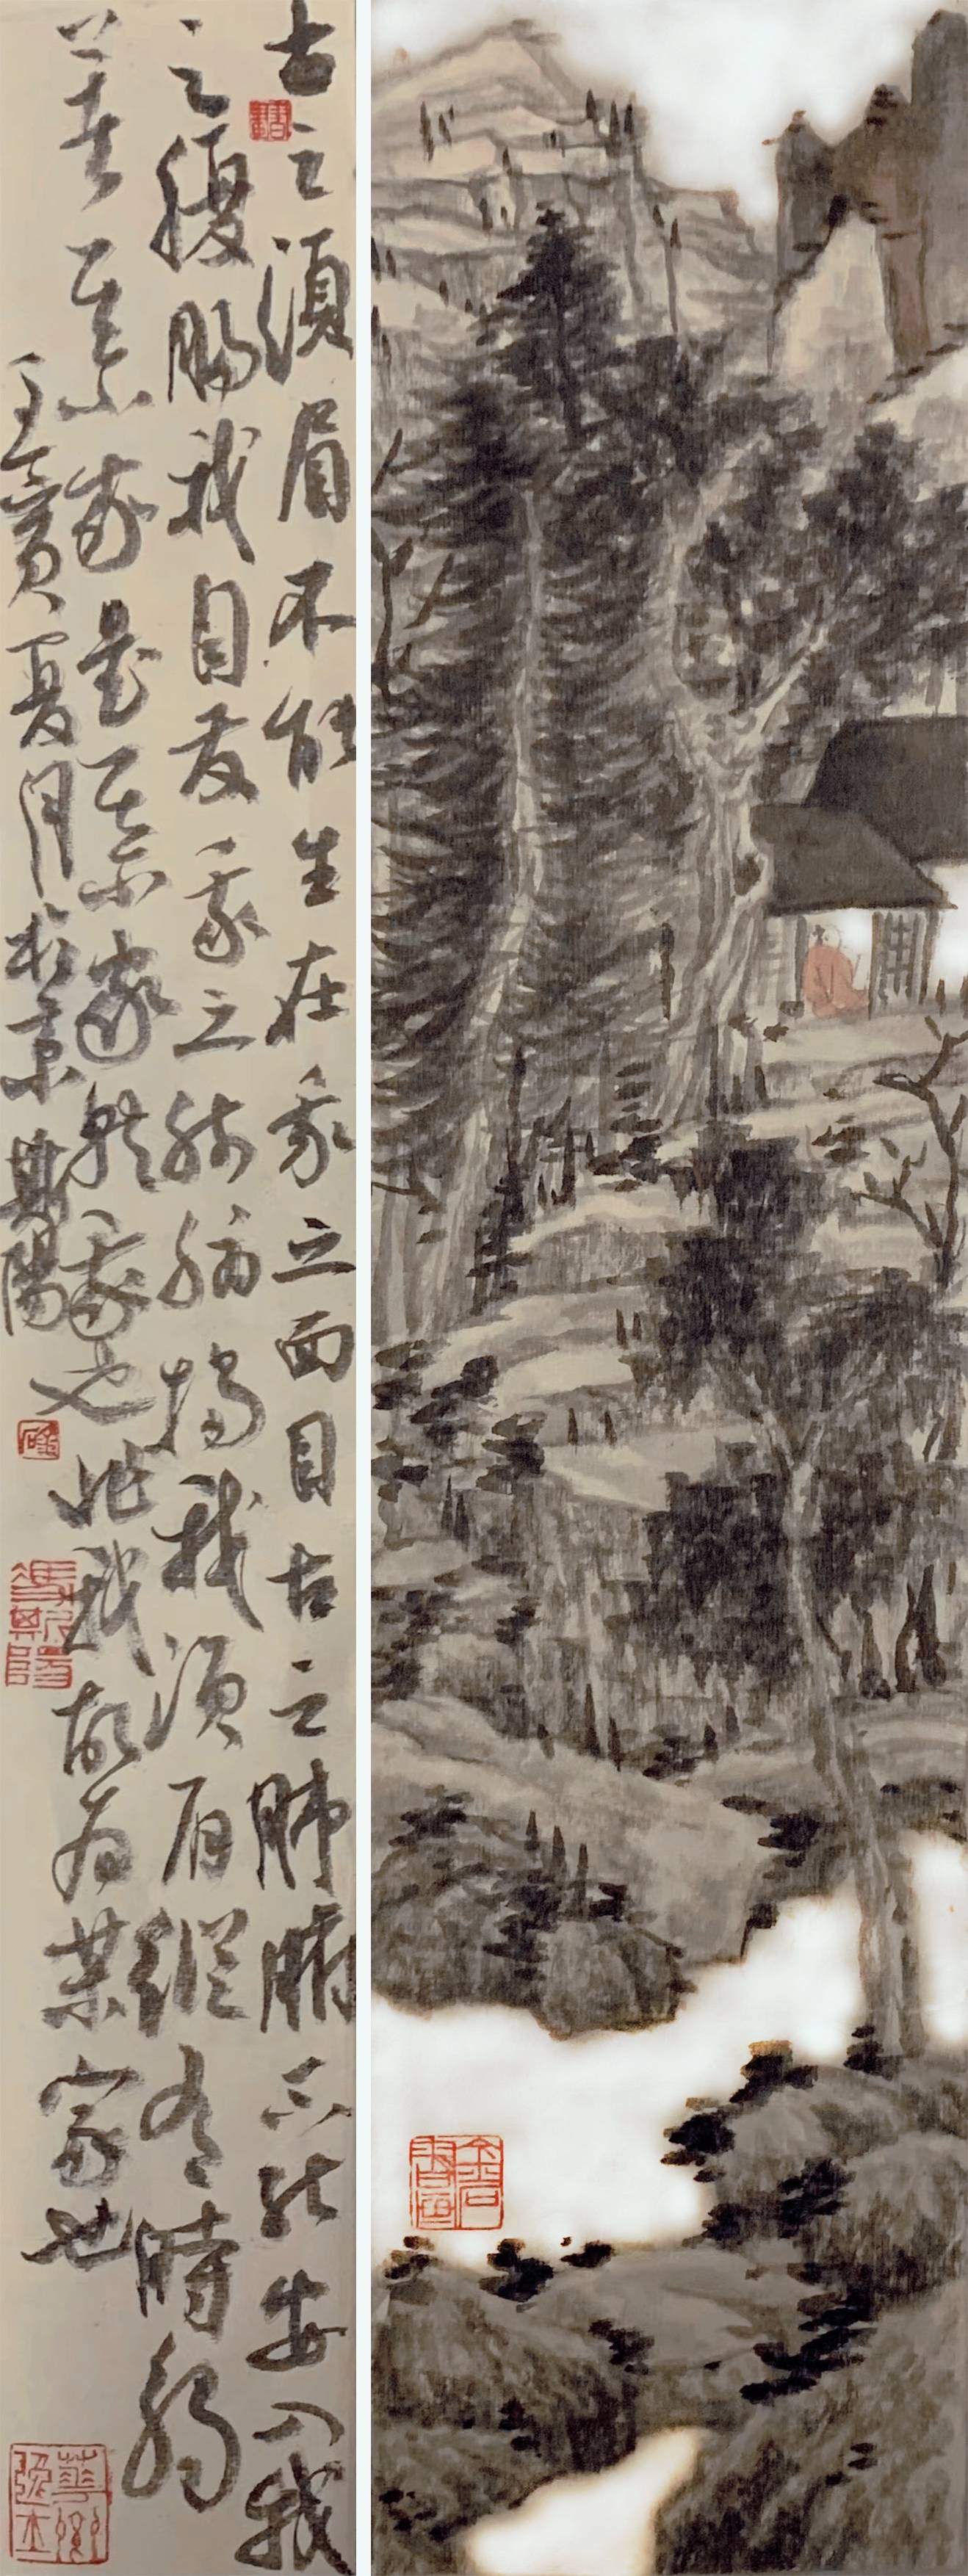 古之須眉不能生在我之面目古之肺腑不能安入我
之腹腸我自發我之肺腑揭我須眉縱有時觸
著某家是某家就我也非我故為某家也
壬寅夏月於京斯陽